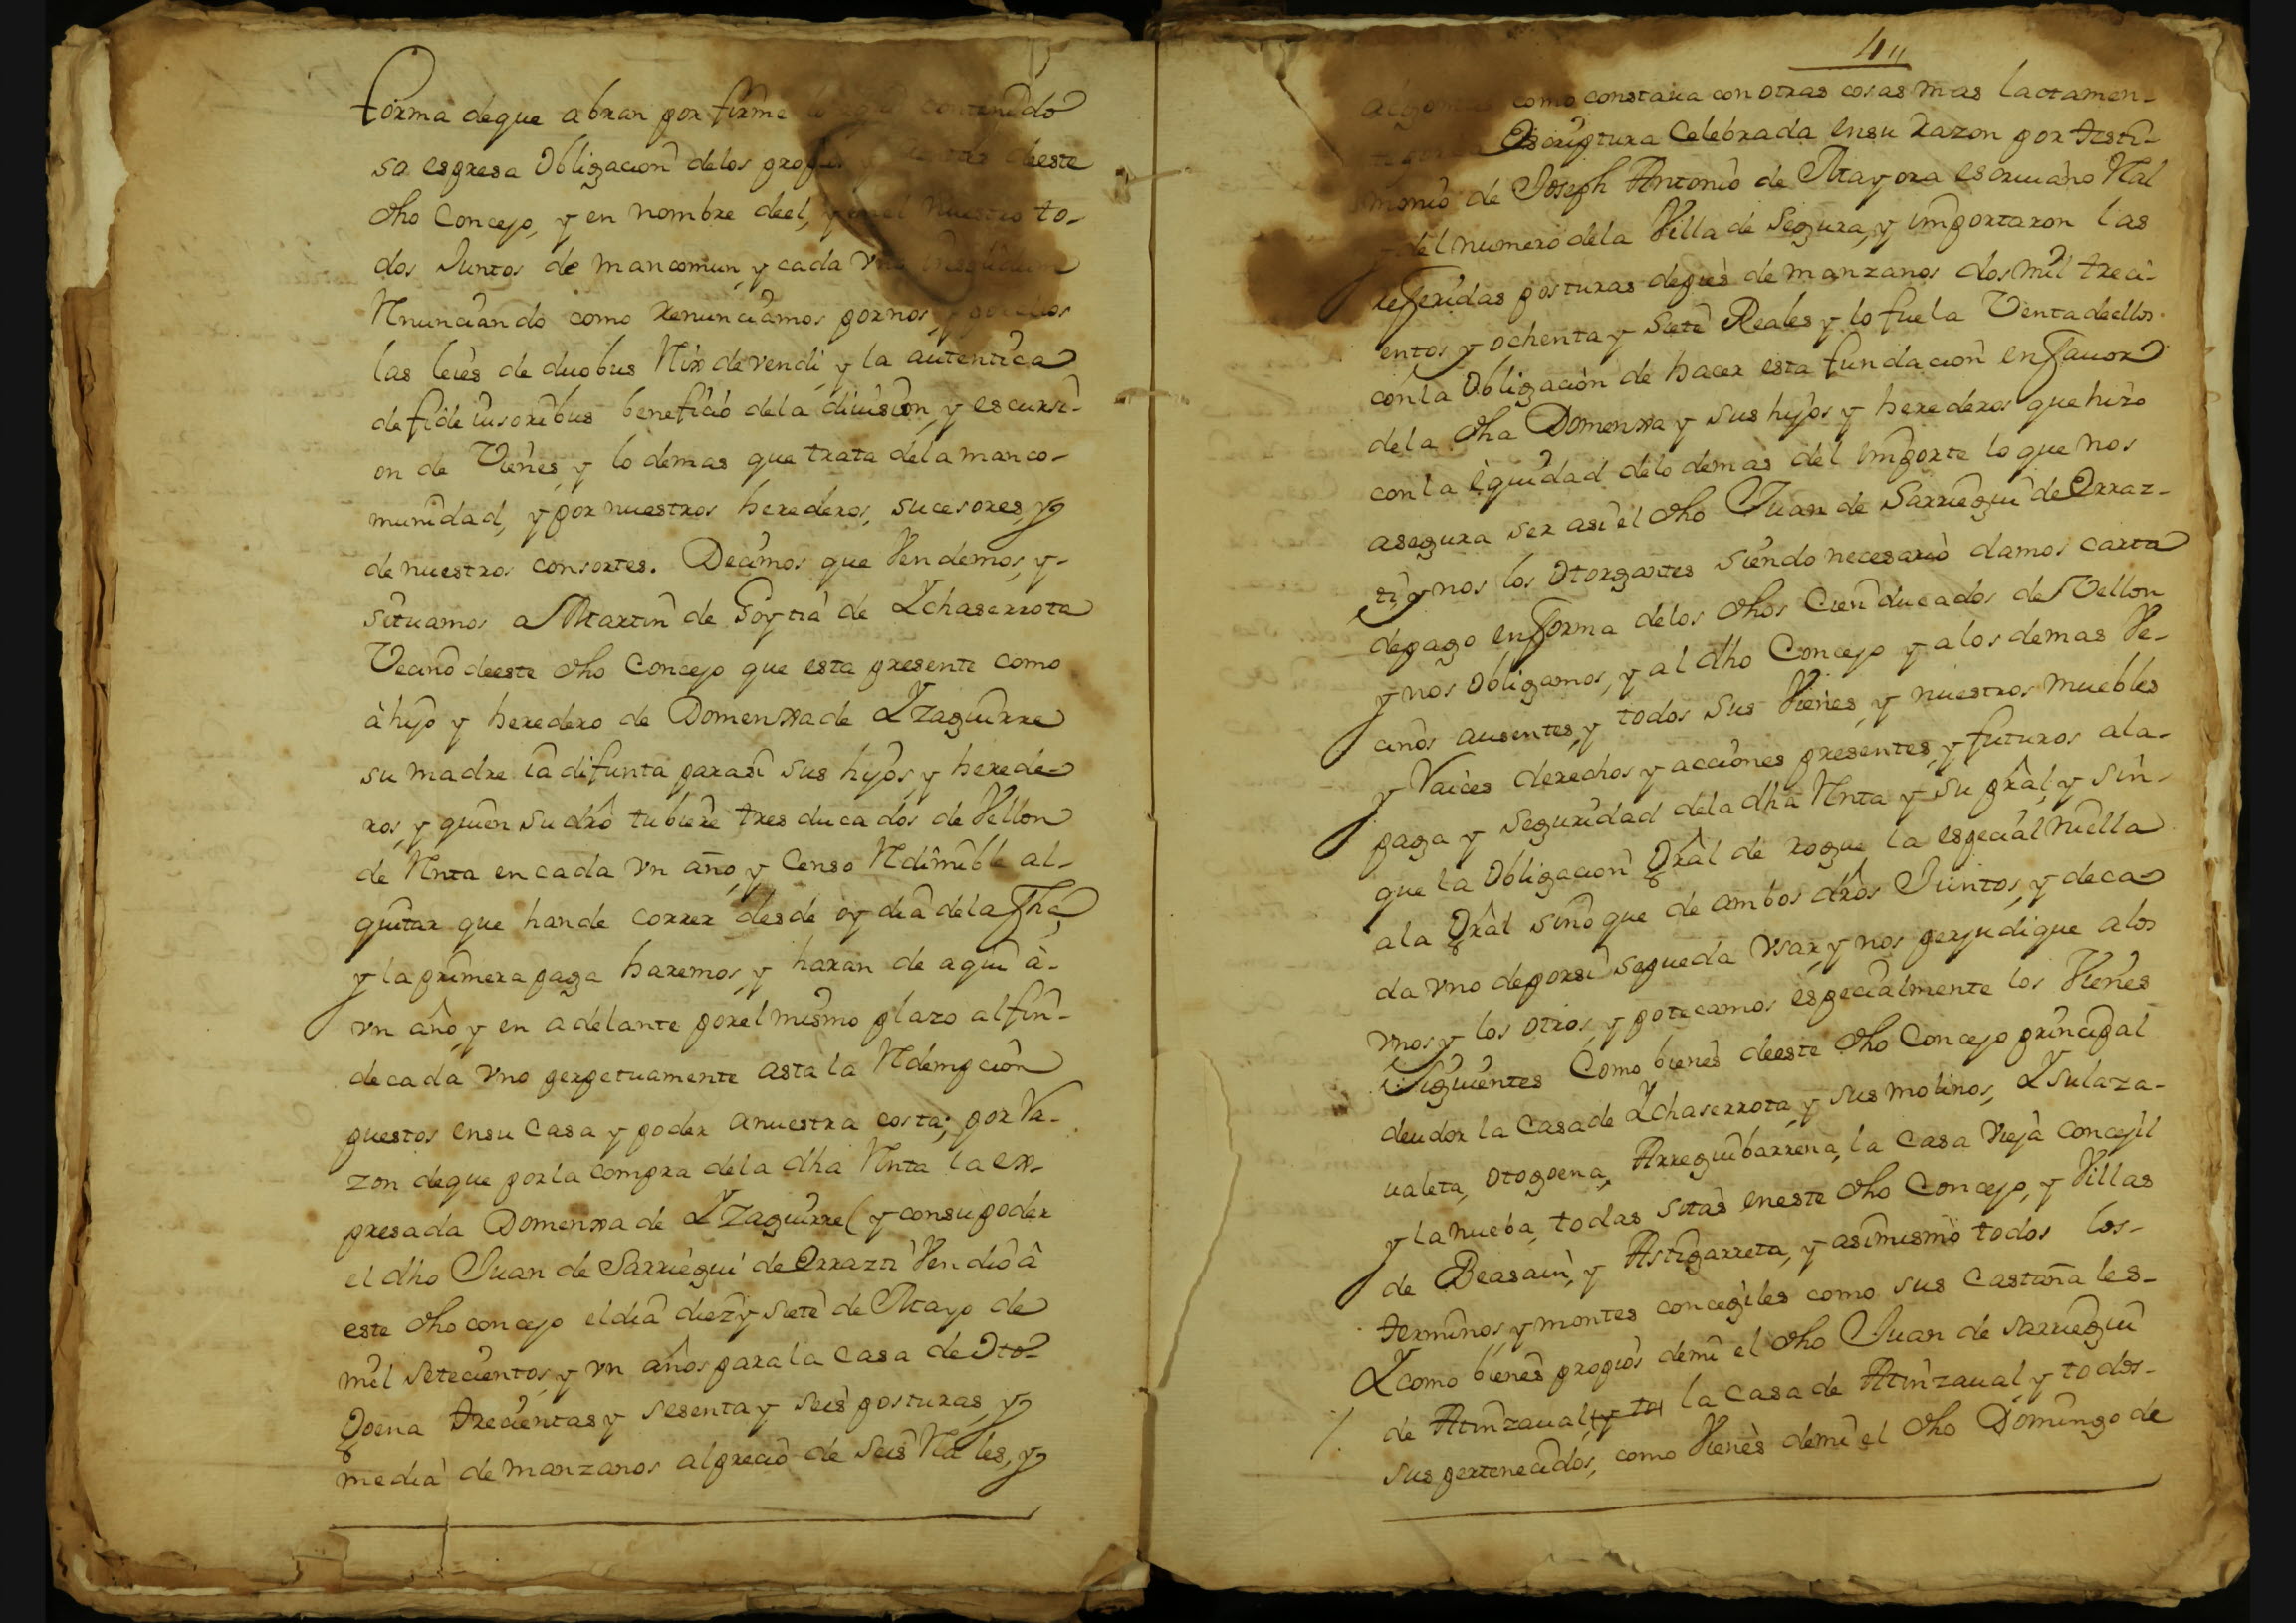 forma de que abran por firme lo aqui contenido
so espresa Obligacion delos propios y rentas deeste
dho Concejo, y en nombre deel, y en el nuestro to-
dos Juntos de mancomun, y cada vno insolidum
Rnunciando como Renunciamos pornos y por ellos
las leies de duobus Rix devendi, y la autentica
de fide iusoribus beneficio dela diuision, y escursi-
on de Vienes, y lo demas que trata dela manco-
munidad, y por nuestros herederos, sucesores, y
de nuestros consortes. Decimos que Vendemos, y-
situamos a Martin de Goytia de Ychaserrota
Vecino deeste dho Concejo que esta presente como
à hijo y heredero de Domenxa de Yzaguirre
su madre ia difunta parasi sus hijos, y herede-
ros, y quien su dro tubiere tres ducados de Vellon
de Rnta en cada vn año, y Censo Rdimible al-
quitar que han de correr desde oy dia dela fha,
y la primera paga haremos, y haran de aqui à-
vn año, y en adelante porel mismo plazo al fin-
de cada vno perpetuamente asta la Rdempcion
puestos en su Casa y poder anuestra costa; por Ra-
zon deque por la compra dela dha Rnta la ex-
presada Domenxa de Yzaguirre (y consu poder
el dho Juan de Sarriegui de Orrazti Vendio â
este dho concejo el dia diez y siete de Mayo de
mil setecientos, y vn años para la Casa de Oto-
goena trecientas y sesenta y seis posturas, y
media de manzanos al precio de seis Rales, y
411
como constara con otras cosas mas lactamen-
Escriptura Celebrada ensu Razon por testi-
monio de Joseph Antonio de Mayora escriuano Ral
y del numero dela Villa de Segura, y importaron las
referidas posturas depies de manzanos dos mil treci-
entos y ochenta y siete Reales y lo fue la Venta deellos
con la Obligacion de hacer esta fundacion en fauor
dela dha Domenxa y sus hijos y herederos que hizo
con la equidad delo demas del importe lo que nos
asegura ser asi el dho Juan de Sarriegui de Orraz-
ti, y nos los Otorgantes siendo necesario damos carta
depago en forma delos dhos Cien ducados de Vellon
y nos Obligamos, y al dho Concejo y alos demas Ve-
cinos ausentes, y todos sus Vienes, y nuestros muebles
y Raices derechos y acciones presentes, y futuros ala-
paga y seguridad dela dha Rnta y su pral, y sin-
que la Obligacion Gral de rogue la especial ni ella
ala Gral sino que de ambos dros Juntos, y deca-
da vno de porsi sepueda vsar, y nos perjudique alos
vnos y los otros, y potecamos especialmente los Vienes
Siguientes Como bienes deeste dho Concejo principal
deudor la Casa de Ychaserrota, y sus molinos, Ysulaza-
ualeta, Otogoena, Arreguibarrena, la Casa vieja concejil
y la nueba, todas sitas eneste dho Concejo, y Villas
de Beasain, y Astigarreta, y asimismo todos los-
terminos, y montes concegiles como sus Castañales-
Y como bienes propios demi el dho Juan de Sarriegui
de Atinzaual la Casa de Atinzaual, y todos-
sus pertenecidos, como Vienes demi el dho Domingo de